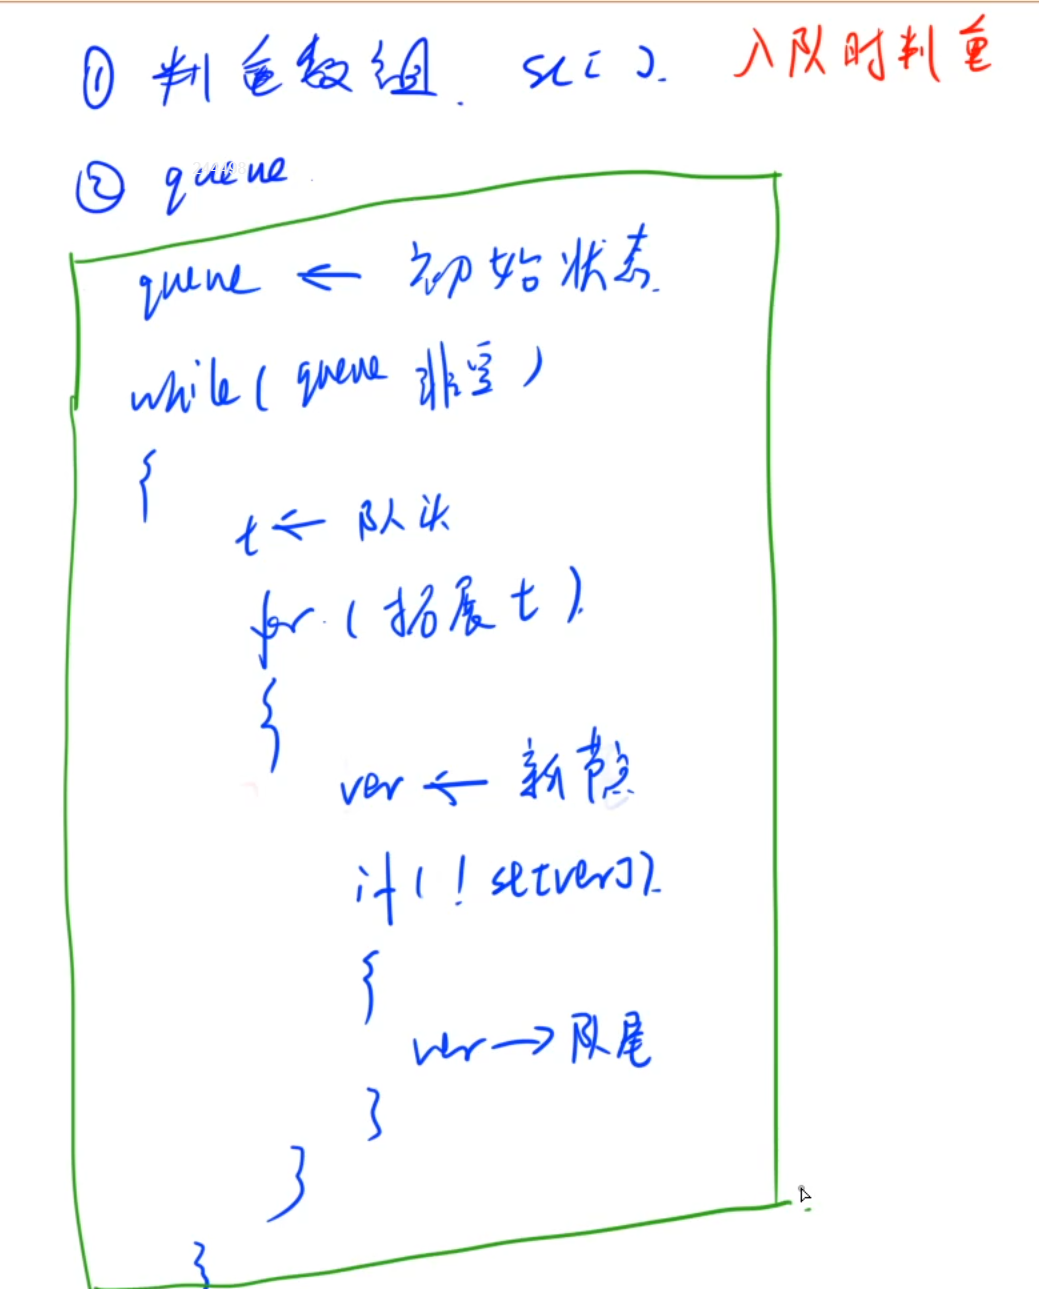 ① 判重数组. st[]. 入队时判重
② queue
queue ← 初始状态.
while(queue 非空)
{
t ← 队头
for.(拓展t)
{
ver ← 新节点
if(!st[ver])
{
ver → 队尾
}
}
}